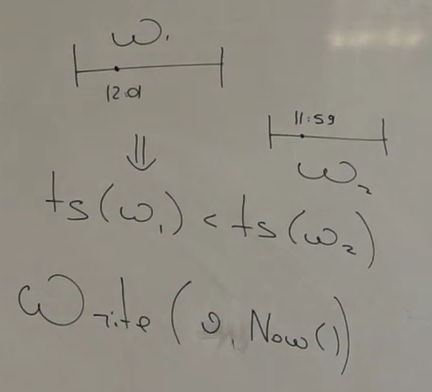 ω₁
12:01
11:59
ω₂
⇓
ts(ω₁) < ts(ω₂)
Write(v, Now())